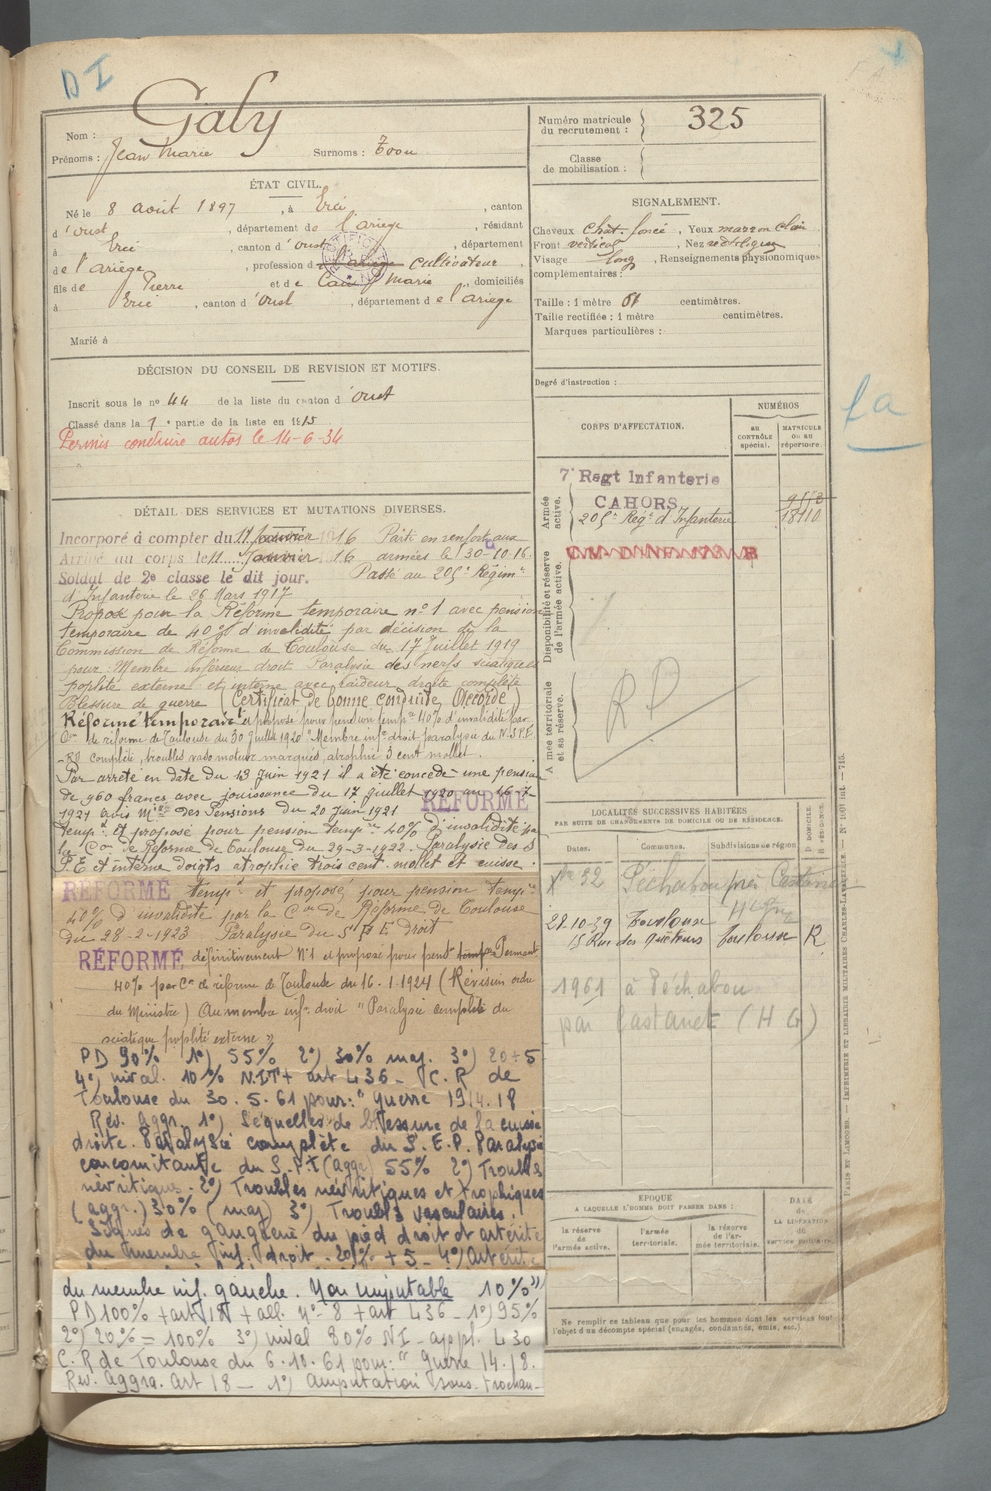 D I
Nom : Galy
Prénoms : Jean Marie Surnoms :
Numéro matricule du recrutement : 325
Classe de mobilisation :
ÉTAT CIVIL.
Né le 8 août 1897, à Ercé, canton
d'oust, département de l'ariège, résidant
à Ercé, canton d'oust, département
de l'ariège, profession d cultivateur
fils de Pierre et de Marie, domiciliés
à Ercé, canton d'oust, département de l'ariège
Marié à
SIGNALEMENT.
Cheveux chat. foncé, Yeux marron clair
Front vertical, Nez rectiligne
Visage long, Renseignements physionomiques
complémentaires :
Taille : 1 mètre 61 centimètres.
Taille rectifiée : 1 mètre centimètres.
Marques particulières :
Degré d'instruction :
DÉCISION DU CONSEIL DE REVISION ET MOTIFS.
Inscrit sous le nº 44 de la liste du canton d'oust
Classé dans la 1e partie de la liste en 1915
Permis conduire autos le 14-6-34
CORPS D'AFFECTATION.
NUMÉROS
AU CONTRÔLE spécial.
MATRICULE OU AU répertoire.
Armée active.
7e Regt Infanterie
CAHORS
205e Régt d'Infanterie 18110
Disponibilité et réserve de l'armée active.
Armée territoriale et sa réserve.
R D
fa
DÉTAIL DES SERVICES ET MUTATIONS DIVERSES.
Incorporé à compter du 11 Janvier 1916 Parti en renfort aux
Arrivé au corps le 11 Janvier 1916 armées le 30-10-16.
Soldat de 2e classe le dit jour. Passé au 205e Régimt
d'Infanterie le 26 Mars 1917
Proposé pour la Réforme temporaire nº 1 avec pension
temporaire de 40% d'invalidité par décision de la
Commission de Réforme de Toulouse du 17 Juillet 1919
pour : Membre inférieur droit Paralysie des nerfs sciatiques
poplité externe et interne avec raideur droite complète
Blessure de guerre (Certificat de bonne conduite Accordé)
Réformé temporaire et proposé pour pension tempre 40% d'invalidité par
Con de réforme de Toulouse du 30 Juillet 1920 Membre infr droit paralysie du N.S.P.E.
RD complète, troubles vaso moteurs marqués, atrophie 3 cent mollet.
Par arrêté en date du 13 Juin 1921 il a été concédé une pension
de 960 francs avec jouissance du 17 Juillet 1920 au 16-7-
1921 avis Mre des Pensions du 20 Juin 1921 RÉFORMÉ
tempre et proposé pour pension tempre 40% d'invalidité par
la Con de Réforme de Toulouse du 29-3-1922. Paralysie des S
P.E et interne doigts atrophie trois cent. mollet et cuisse.
RÉFORMÉ tempre et proposé pour pension tempre
40% d'invalidité par la Con de Réforme de Toulouse
du 28-2-1923 Paralysie du S P E droit
RÉFORMÉ définitivement Nº1 et proposé pour pension Permanente
40% par Con de réforme de Toulouse du 16.1.1924 (Révision ordre
du Ministre) Au membre inf. droit "Paralysie complète du
sciatique poplité externe"
PD 90% 1º) 55% 2º) 30% maj. 3º) 20+5
4º) nival. 10% N.I + art L36 - C.R de
Toulouse du 30.5.61 pour : "guerre 1914.18
Rev. Aggr. 1º) Séquelles de blessure de la cuisse
droite. Paralysie complète du S.E.P. Paralysie
concomitante du S.P.I (aggr) 55% 2º) Troubles
névritiques. 2º) Troubles névritiques et trophiques
(aggr.) 30% (maj) 3º) Troubles vasculaires.
Signes de gangrène du pied droit et artérite
du membre inf. droit. 20% + 5 - 4º) Artérite
du membre inf. gauche. Non imputable 10%"
PD 100% + art + all. nº 8 + art L36 - 1º) 95%
2º) 20% = 100% 3º) nival 80% NI - appl. L30
C.R de Toulouse du 6.10.61 pour : "guerre 14.18.
Rev. Aggra. Art 18 - 1º) Amputation sous trochan-
LOCALITÉS SUCCESSIVES HABITÉES
PAR SUITE DE CHANGEMENTS DE DOMICILE OU DE RÉSIDENCE.
Dates. Communes. Subdivisions de région. D. DOMICILE. R. RÉSIDENCE.
Xbre 32 Péchabou près Castanet
28.10.39 Toulouse
15 Rue des Toulouse R
1961 à Péchabou
par Castanet (H G)
EPOQUE
A LAQUELLE L'HOMME DOIT PASSER DANS :
la réserve de l'armée active.
l'armée territoriale.
la réserve de l'armée territoriale.
DATE de LA LIBÉRATION du service militaire.
Ne remplir ce tableau que pour les hommes dont les services font
l'objet d'un décompte spécial (engagés, condamnés, omis, etc.).
PARIS ET LIMOGES. — IMPRIMERIE ET LIBRAIRIE MILITAIRES CHARLES-LAVAUZELLE.